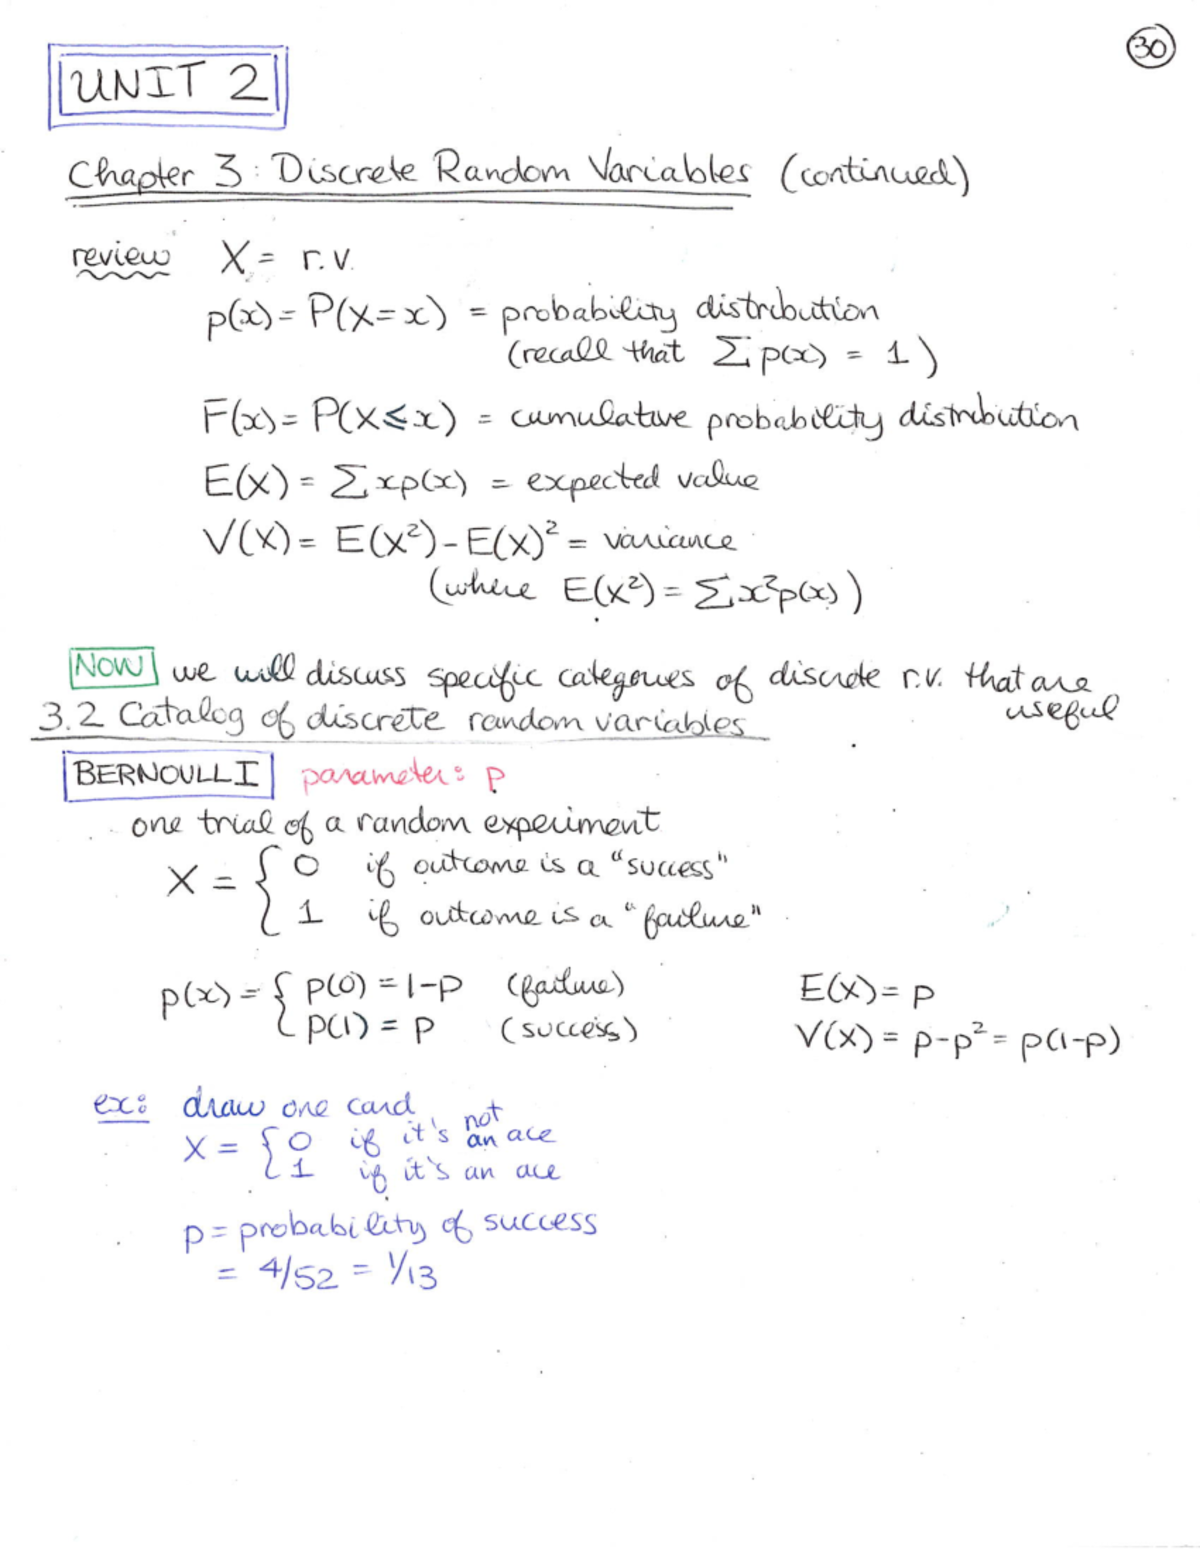 30
UNIT 2
Chapter 3: Discrete Random Variables (continued)
review X = r.v.
p(x) = P(X=x) = probability distribution
(recall that Σ p(x) = 1)
F(x) = P(X≤x) = cumulative probability distribution
E(X) = Σ xp(x) = expected value
V(X) = E(X²) - E(X)² = variance
(where E(X²) = Σ x²p(x))
NOW we will discuss specific categories of discrete r.v. that are useful
3.2 Catalog of discrete random variables
BERNOULLI parameter: p
one trial of a random experiment
X = { 0 if outcome is a "success"
1 if outcome is a "failure"
p(x) = { p(0) = 1-p (failure)
p(1) = p (success)
E(X) = p
V(X) = p-p² = p(1-p)
ex: draw one card
X = { 0 if it's not an ace
1 if it's an ace
p = probability of success
= 4/52 = 1/13